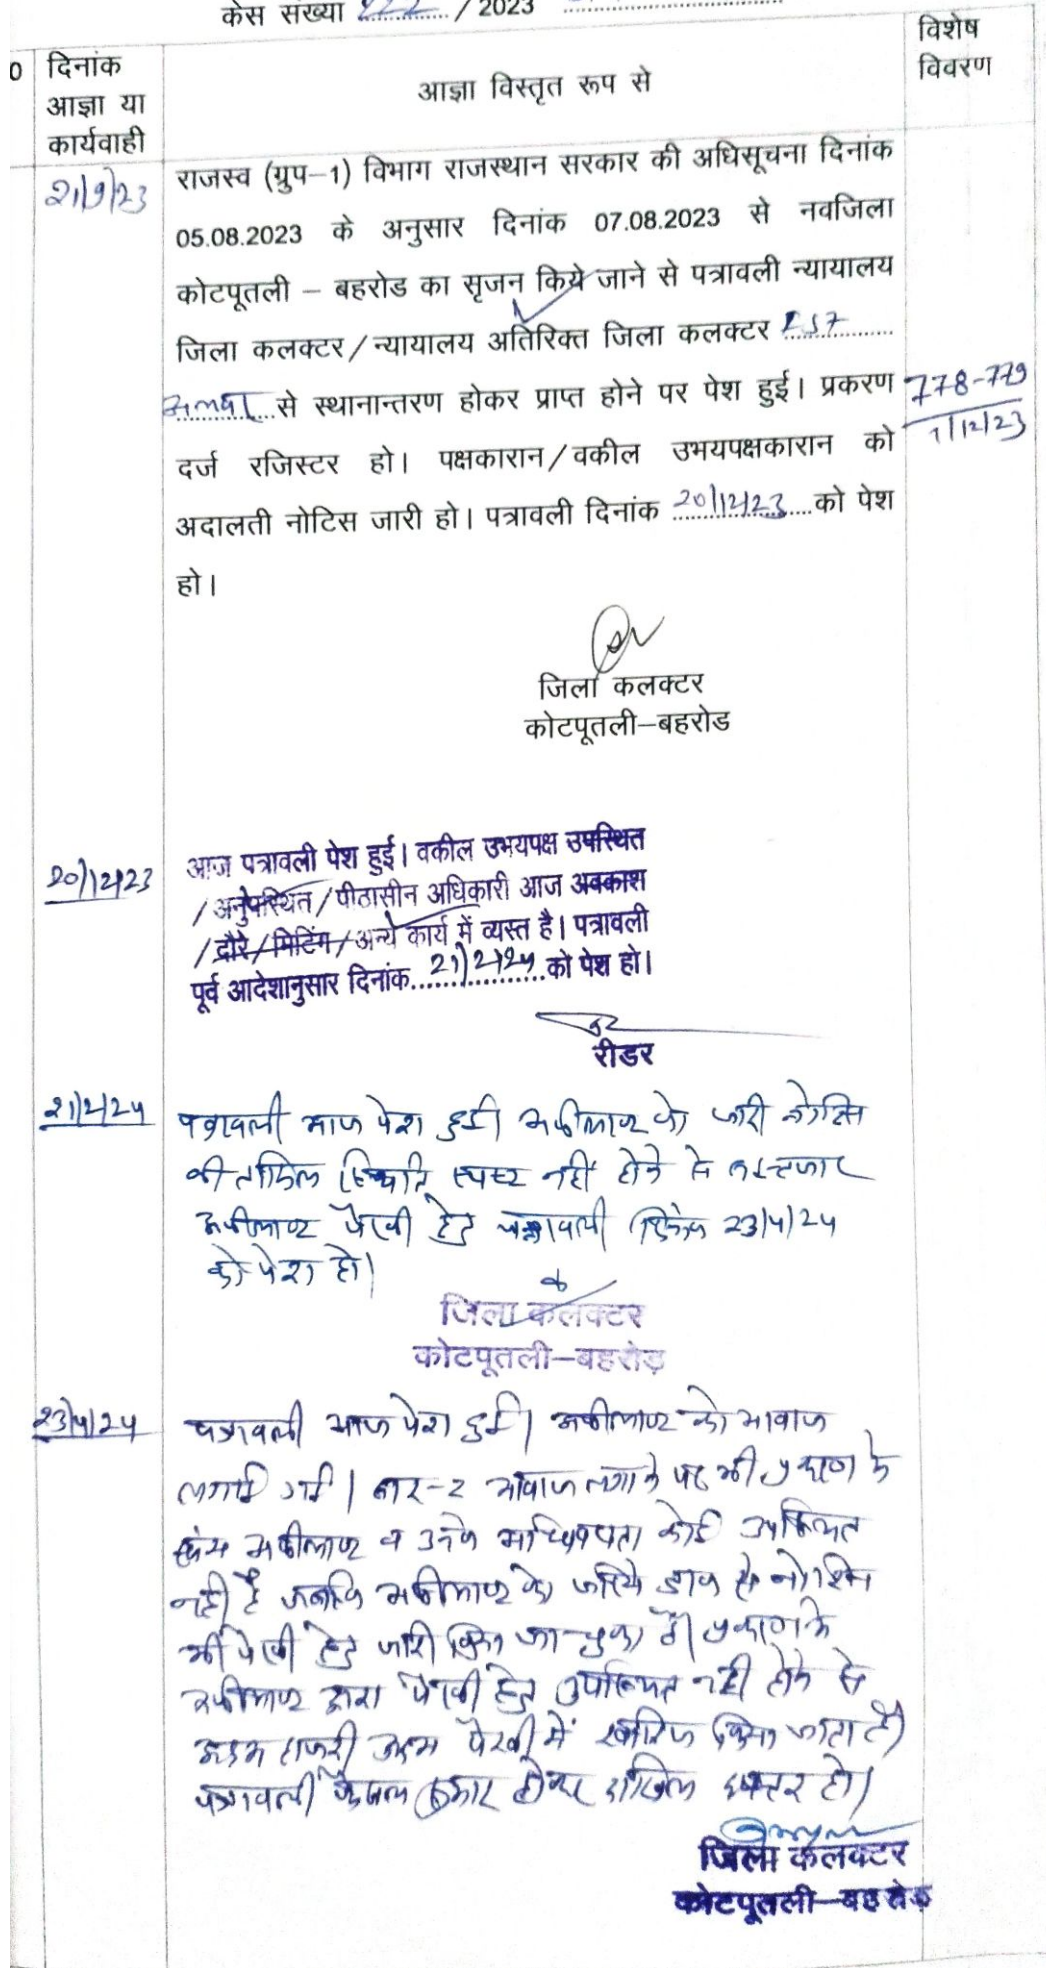 केस संख्या 222 / 2023
विशेष
विवरण
0 दिनांक
आज्ञा या
कार्यवाही
आज्ञा विस्तृत रूप से
21/9/23
राजस्व (ग्रुप–1) विभाग राजस्थान सरकार की अधिसूचना दिनांक
05.08.2023 के अनुसार दिनांक 07.08.2023 से नवजिला
कोटपूतली – बहरोड का सृजन किये जाने से पत्रावली न्यायालय
जिला कलक्टर/न्यायालय अतिरिक्त जिला कलक्टर
अलवर से स्थानान्तरण होकर प्राप्त होने पर पेश हुई। प्रकरण
दर्ज रजिस्टर हो। पक्षकारान/वकील उभयपक्षकारान को
अदालती नोटिस जारी हो। पत्रावली दिनांक 20/12/23 को पेश
हो।
778-779
1/12/23
जिला कलक्टर
कोटपूतली–बहरोड
20/12/23
आज पत्रावली पेश हुई। वकील उभयपक्ष उपस्थित
/अनुपस्थित/पीठासीन अधिकारी आज अवकाश
/दौरे/मिटिंग/अन्य कार्य में व्यस्त है। पत्रावली
पूर्व आदेशानुसार दिनांक 21/2/24 को पेश हो।
रीडर
21/2/24
पत्रावली आज पेश हुई। अपीलाण्ट को जारी नोटिस
की तामिल स्थिति स्पष्ट नहीं होने से इन्तजार
अपीलाण्ट पैरवी हेतु पत्रावली दिनांक 23/4/24
को पेश हो।
जिला कलक्टर
कोटपूतली–बहरोड़
23/4/24
पत्रावली आज पेश हुई। अपीलाण्ट को आवाज
लगाई गई। बार-2 आवाज लगाने पर भी प्रकरण के
स्वंय अपीलाण्ट व उनके अधिवक्ता कोई उपस्थित
नही है जबकि अपीलाण्ट को जरिये डाक से नोटिस
भी पैरवी हेतु जारी किया जा चुका है। प्रकरण के
अपीलाण्ट द्वारा पैरवी हेतु उपस्थित नही होने से
अदम हाजरी अदम पैरवी में खारिज किया जाता है।
पत्रावली फैसल शुमार होकर दाखिल दफ्तर हो।
जिला कलक्टर
कोटपूतली–बहरोड़